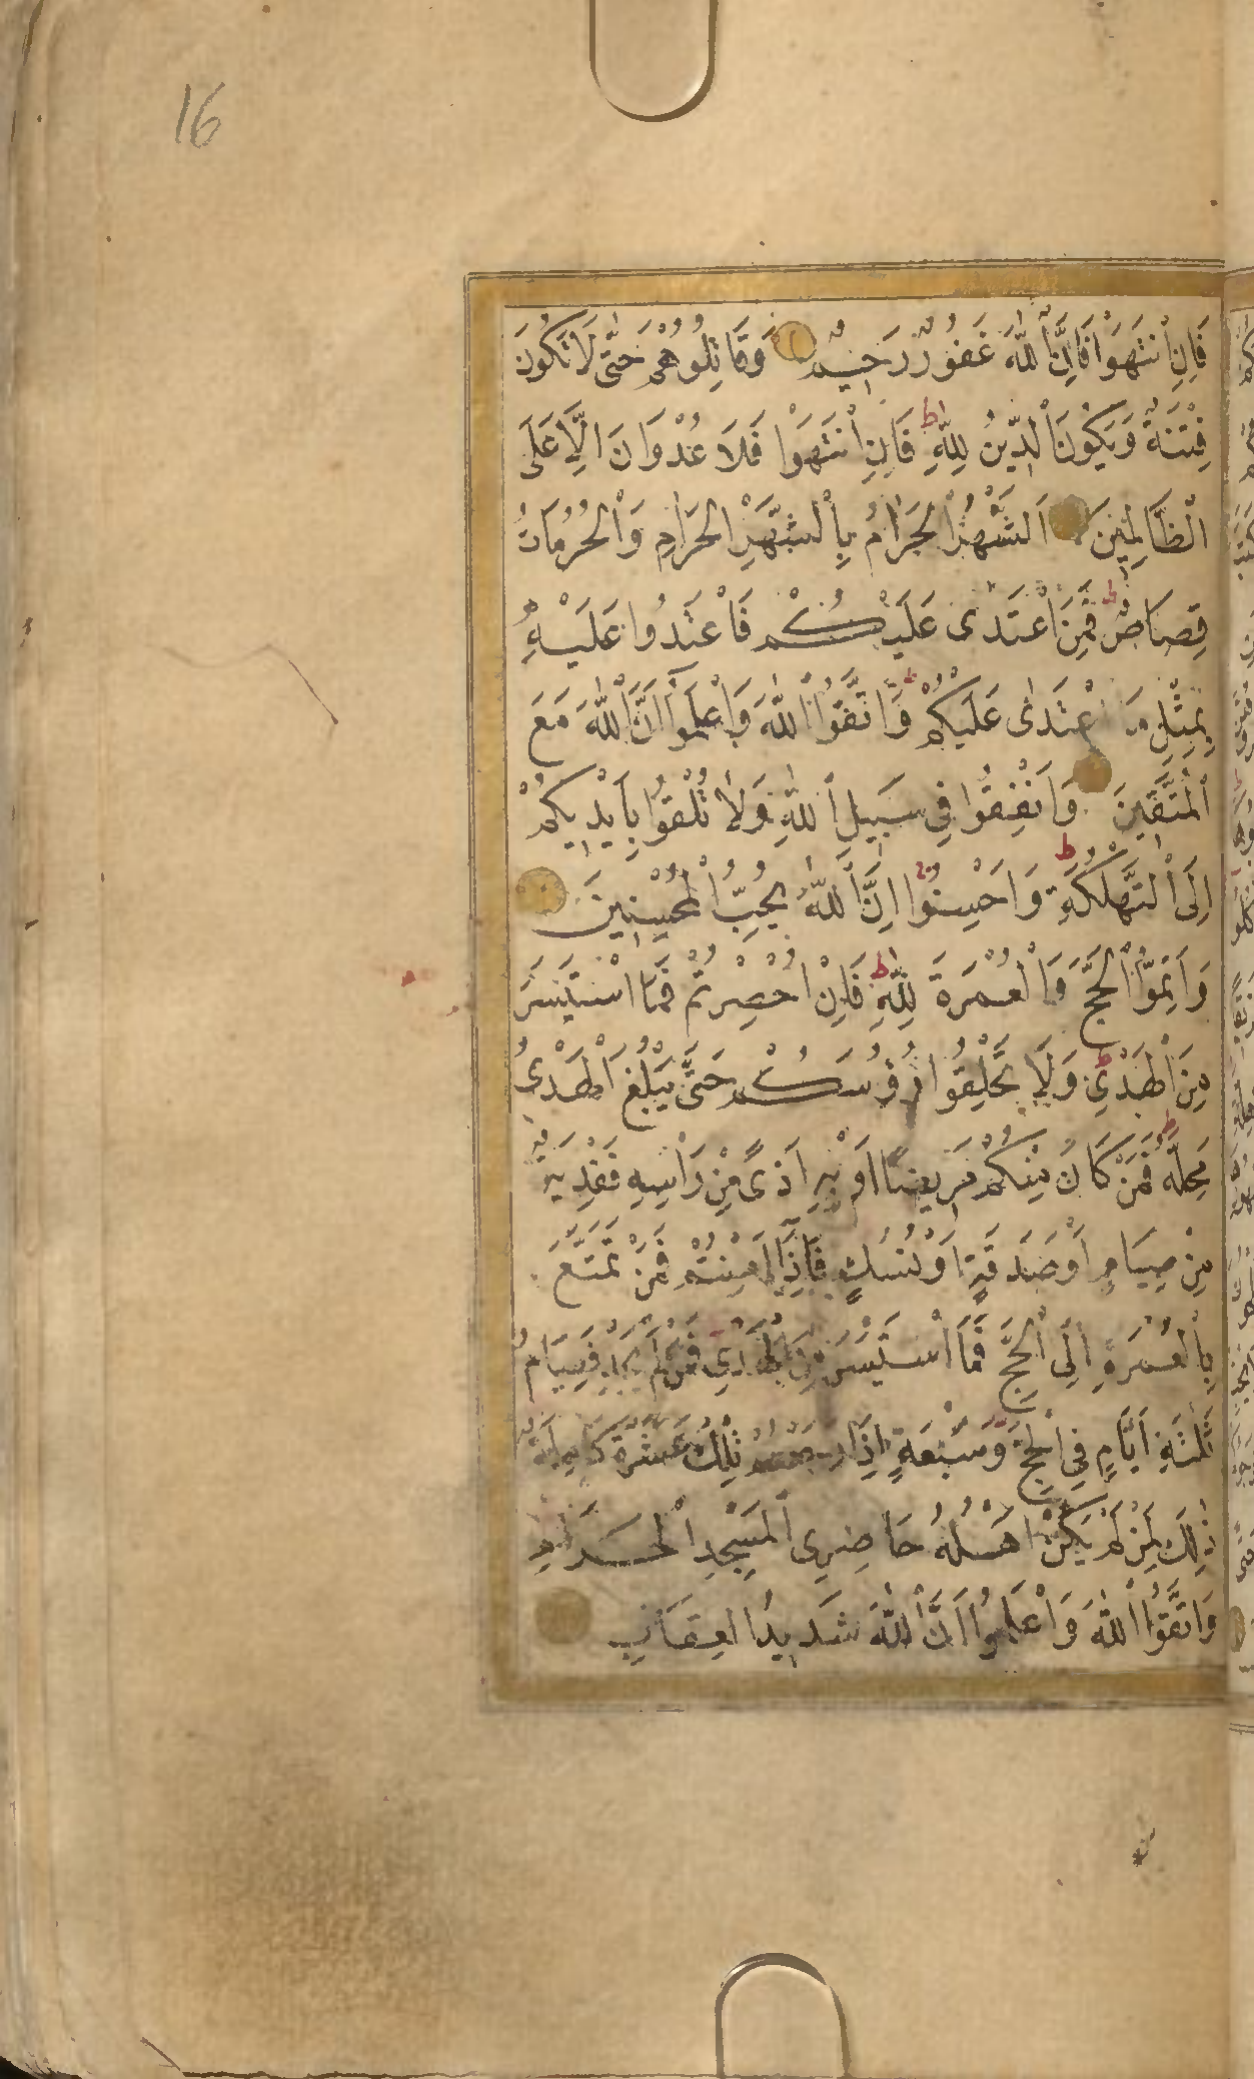 16
فَاِنِ انْتَهَوْا فَاِنَّ اللّٰهَ غَفُورٌ رَحِيمٌ وَقَاتِلُوهُمْ حَتّٰى لَا تَكُونَ
فِتْنَةٌ وَيَكُونَ الدِّينُ لِلّٰهِ ط فَاِنِ انْتَهَوْا فَلَا عُدْوَانَ اِلَّا عَلَى
الْظَّالِمِينَ اَلشَّهْرُ الْحَرَامُ بِالشَّهْرِ الْحَرَامِ وَالْحُرُمَاتُ
قِصَاصٌ ط فَمَنِ اعْتَدٰى عَلَيْكُمْ فَاعْتَدُوا عَلَيْهِ
بِمِثْلِ مَا اعْتَدٰى عَلَيْكُمْ وَاتَّقُوا اللّٰهَ وَاعْلَمُوا اَنَّ اللّٰهَ مَعَ
الْمُتَّقِينَ وَاَنْفِقُوا فِى سَبِيلِ اللّٰهِ وَلَا تُلْقُوا بِاَيْدِيكُمْ
اِلَى التَّهْلُكَةِ ط وَاَحْسِنُوا اِنَّ اللّٰهَ يُحِبُّ الْمُحْسِنِينَ
وَاَتِمُّوا الْحَجَّ وَالْعُمْرَةَ لِلّٰهِ ط فَاِنْ اُحْصِرْتُمْ فَمَا اسْتَيْسَرَ
مِنَ الْهَدْىِ وَلَا تَحْلِقُوا رُؤُسَكُمْ حَتّٰى يَبْلُغَ الْهَدْىُ
مَحِلَّهُ ط فَمَنْ كَانَ مِنْكُمْ مَرِيضًا اَوْ بِهِ اَذًى مِنْ رَاْسِهِ فَفِدْيَةٌ
مِنْ صِيَامٍ اَوْ صَدَقَةٍ اَوْ نُسُكٍ فَاِذَا اَمِنْتُمْ فَمَنْ تَمَتَّعَ
بِالْعُمْرَةِ اِلَى الْحَجِّ فَمَا اسْتَيْسَرَ مِنَ الْهَدْىِ فَمَنْ لَمْ يَجِدْ فَصِيَامُ
ثَلٰثَةِ اَيَّامٍ فِى الْحَجِّ وَسَبْعَةٍ اِذَا رَجَعْتُمْ تِلْكَ عَشَرَةٌ كَامِلَةٌ
ذٰلِكَ لِمَنْ لَمْ يَكُنْ اَهْلُهُ حَاضِرِى الْمَسْجِدِ الْحَرَامِ
وَاتَّقُوا اللّٰهَ وَاعْلَمُوا اَنَّ اللّٰهَ شَدِيدُ الْعِقَابِ